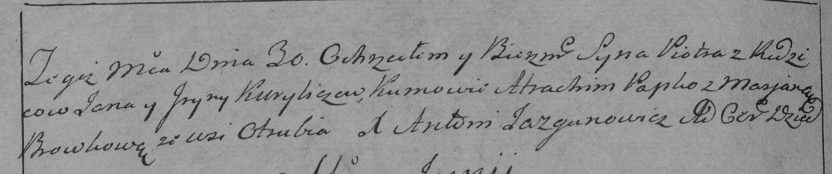 Tegoż Mca Dnia 30. Ochrzciłem y Bierzm Syna Piotra z Rodzi
cow Jana y Jryny Kuryliczow, Kumowie Atrachim Papko z Marjaną
Browkową ze wsi Otrubia X Antoni Jazgunowicz
Junij